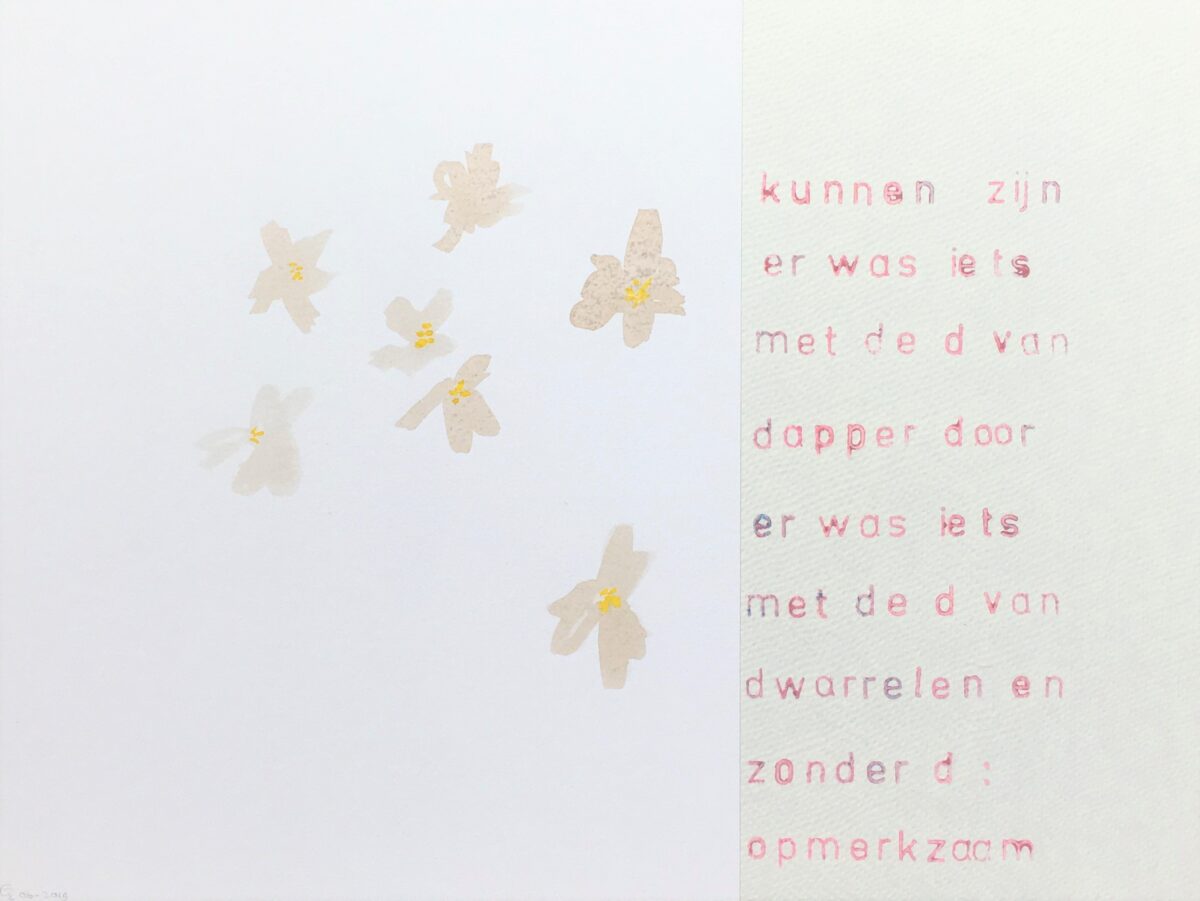 kunnen zijn
er was iets
met de d van
dapper door
er was iets
met de d van
dwarrelen en
zonder d :
opmerkzaam